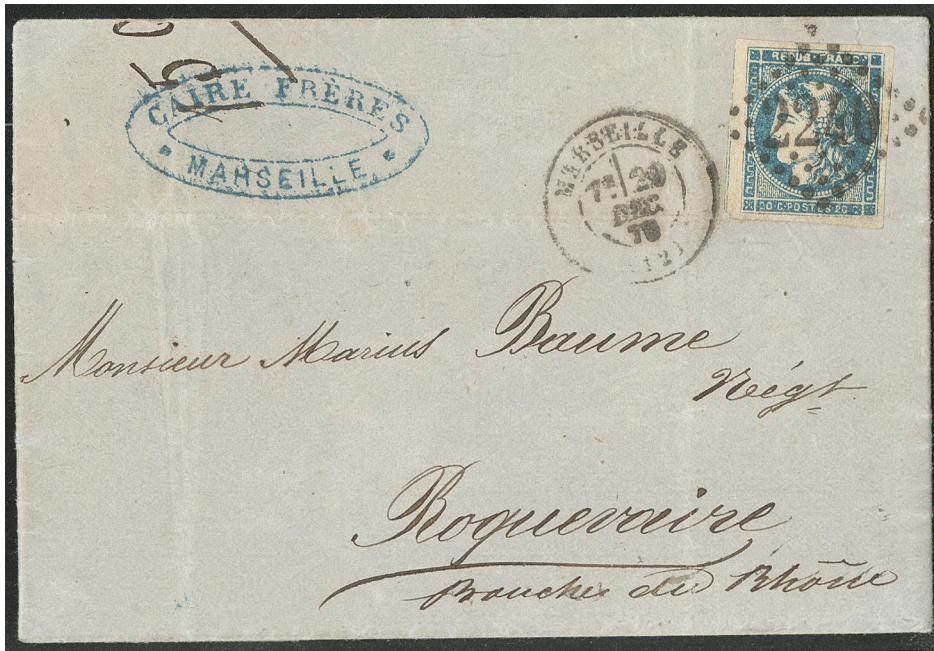 CAIRE FRÈRES
MARSEILLE
MARSEILLE
7E 29
DEC.
70
(12)
REPUB. FRANC.
20 C. POSTES 20 C.
Monsieur Marius Baume
Négt
Roquevaire
Bouches du Rhône